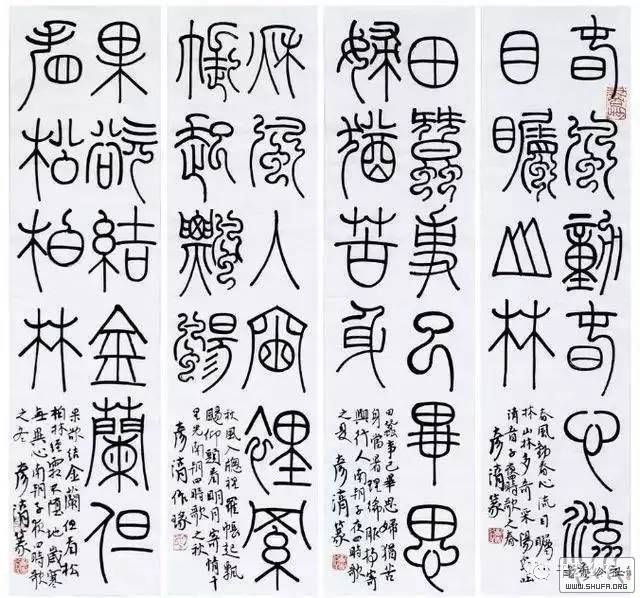 春風動春心流
目矚山林
春風動春心流目矚
林山林多奇采陽鳥吐
清音子夜四時歌之春
彥清篆
田蠶事已畢思
婦猶苦身
田蠶事已畢思婦猶苦
身當暑理絺服持寄
與行人南朝子夜四時歌
之夏 彥清篆
秋風入窗裡羅
帳起飄颺
秋風入窗裡羅帳起飄
颺仰頭看明月寄情千
里光南朝四時歌之秋
彥清作篆
果欲結金蘭但
看松柏林
果欲結金蘭但看松
柏林經霜不墮地歲寒
無異心南朝子夜四時歌
之冬 彥清篆
WWW.SHUFA.ORG